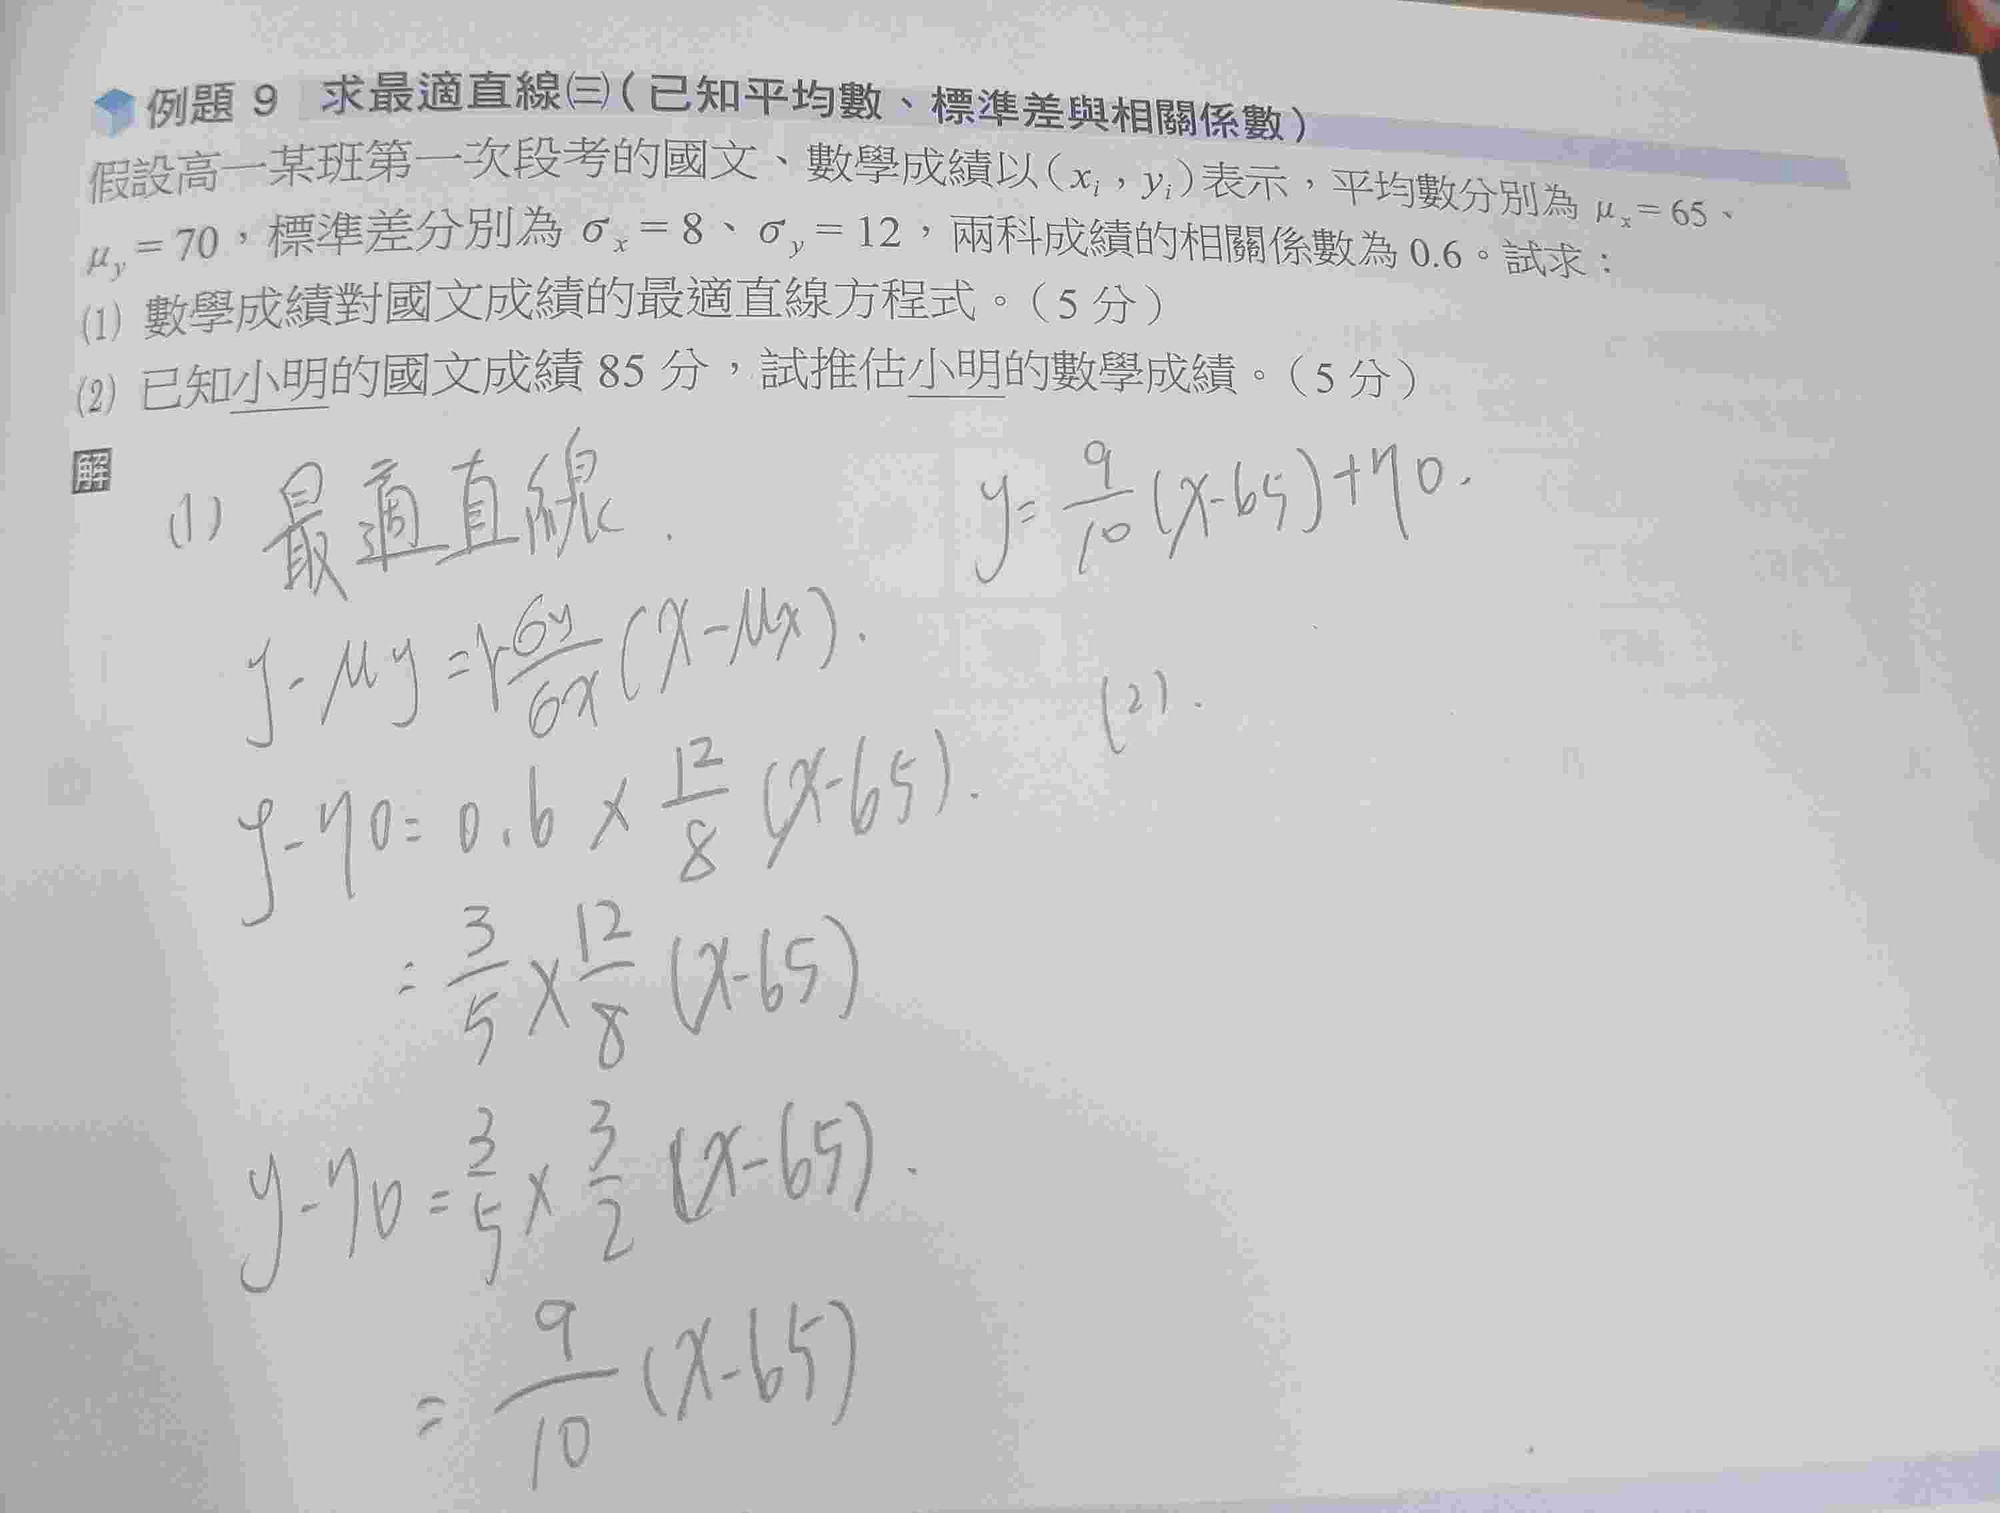 例題 9 求最適直線㈢(已知平均數、標準差與相關係數)
假設高一某班第一次段考的國文、數學成績以(xᵢ,yᵢ)表示,平均數分別為 μₓ=65、
μy=70,標準差分別為 σₓ=8、σy=12,兩科成績的相關係數為 0.6。試求:
(1) 數學成績對國文成績的最適直線方程式。(5 分)
(2) 已知小明的國文成績 85 分,試推估小明的數學成績。(5 分)
解
(1) 最適直線.
y-μy=r σy/σx (x-μx).
y-70=0.6×12/8(x-65).
=3/5×12/8(x-65)
y-70=3/5×3/2(x-65).
=9/10(x-65)
y=9/10(x-65)+70.
(2).